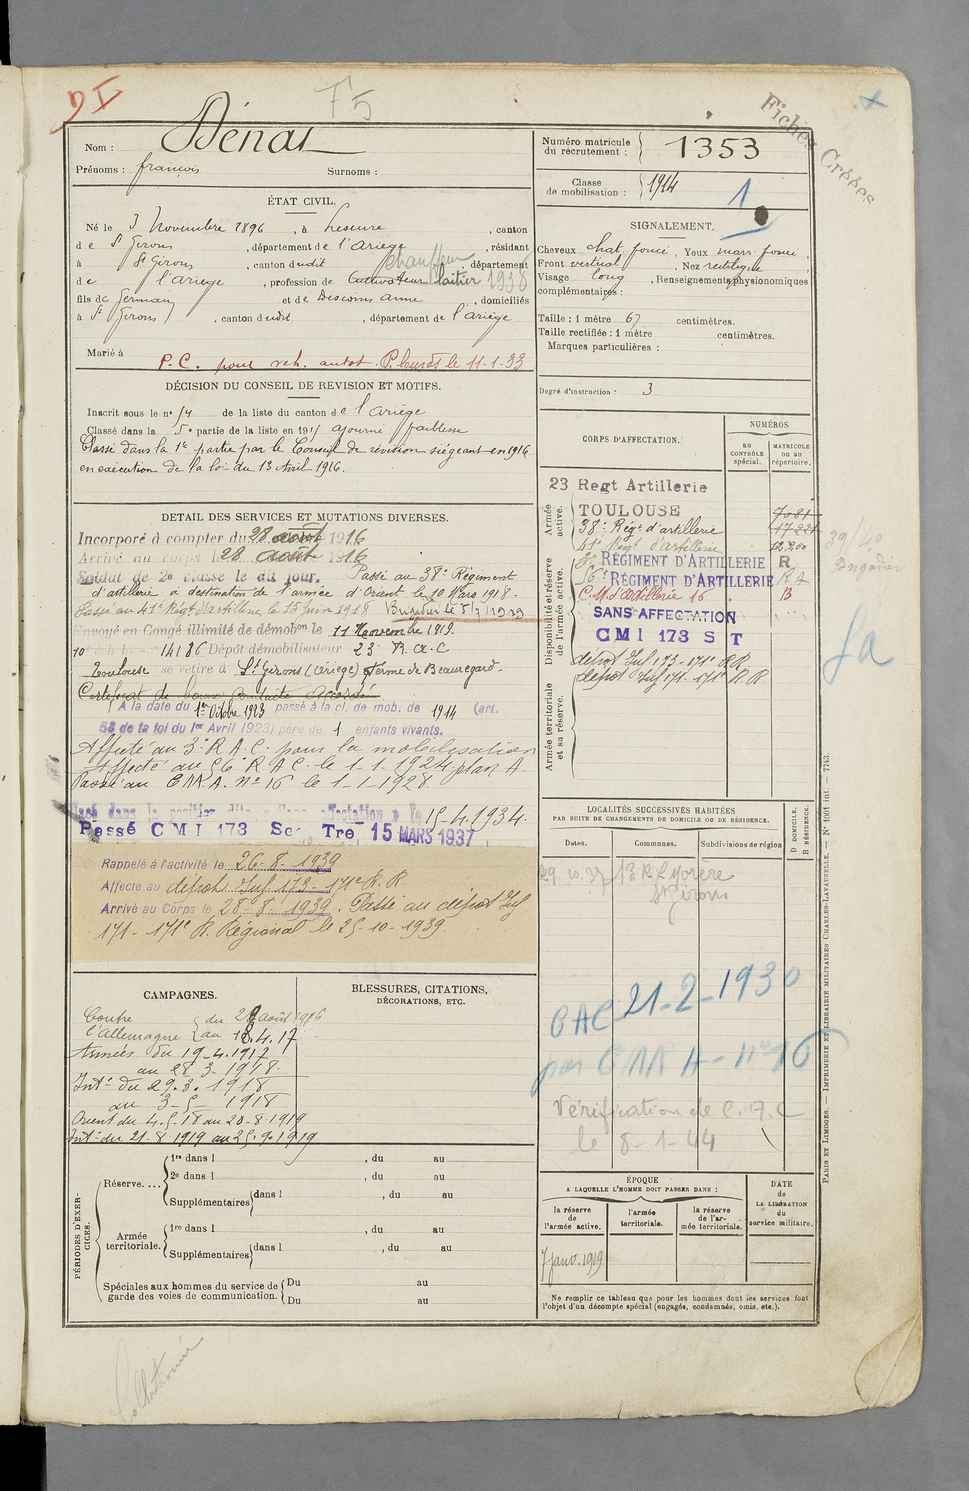 F5
Fichés Créées
Nom : Dénat
Prénoms : françois Surnoms :
Numéro matricule du recrutement : 1353
Classe de mobilisation : 1914
1
ÉTAT CIVIL.
Né le 3 Novembre 1896, à Lescure, canton
de St Girons, département de l'Ariège, résidant
à St Girons, canton dudit, département
Chauffeur
de l'ariège, profession de Cultivateur laitier 1938
fils de Germain et de Descoins Anne, domiciliés
à St Girons, canton dudit, département de l'ariège
Marié à
P.C. pour reh. autot. le 11-1-33
SIGNALEMENT.
Cheveux chat. foncé, Yeux marr. foncé,
Front vertical, Nez rectiligne,
Visage long, Renseignements physionomiques
complémentaires :
Taille : 1 mètre 67 centimètres.
Taille rectifiée : 1 mètre centimètres.
Marques particulières :
Degré d'instruction : 3
DÉCISION DU CONSEIL DE REVISION ET MOTIFS.
Inscrit sous le n° 54 de la liste du canton de l'ariège
Classé dans la 5e partie de la liste en 1915 ajourné faiblesse
Classé dans la 1e partie par le Conseil de révision siégeant en 1916
en exécution de la loi du 13 Avril 1916.
DETAIL DES SERVICES ET MUTATIONS DIVERSES.
Incorporé à compter du 28 août 1916
Arrivé au corps le 28 août 1916
Soldat de 2e classe le dit jour. Passé au 38e Régiment
d'artillerie à destination de l'armée d'Orient le 10 Mars 1918.
Passé au 41e Régt d'artillerie le 15 Juin 1918
Envoyé en Congé illimité de démobon le 11 Novembre 1919.
10e 14186 Dépôt démobilisateur 23e R.A.C
Toulouse se retire à St Girons (Ariège) ferme de Beauregard.
Certificat de bonne conduite accordé
A la date du 1er Octobre 1923 passé à la cl. de mob. de 1914 (art.
58 de la loi du 1er Avril 1923) père de 1 enfants vivants.
Affecté au 3e R.A.C. pour la mobilisation
Affecté au 56e R.A.C. le 1-1-1924 plan A.
Passé au C.M.A. N° 16 le 1-1-1928.
Classé dans la position dite « Sans affectation » le 15-4.1934.
Passé CMI 173 Sec Tre 15 MARS 1937
Rappelé à l'activité le 26-8-1939
Affecté au dépôt Inf 173-171e R.R.
Arrivé au Corps le 28-8-1939. Passé au dépôt Inf
171-171e R. Régional le 25-10-1939.
CORPS D'AFFECTATION.
NUMÉROS
au CONTRÔLE spécial.
MATRICULE ou au répertoire.
Armée active.
Disponibilité et réserve de l'armée active.
Armée territoriale et sa réserve.
23 Regt Artillerie
TOULOUSE
38e Régt d'artillerie
41e Régt d'artillerie 12.200
3e RÉGIMENT D'ARTILLERIE R
56e RÉGIMENT D'ARTILLERIE R A
C.M. d'artillerie 16 B
SANS AFFECTATION
CMI 173 S T
dépôt Inf 173-171e R.R.
dépôt Inf 171-171e R.R
LOCALITÉS SUCCESSIVES HABITÉES
PAR SUITE DE CHANGEMENTS DE DOMICILE OU DE RÉSIDENCE.
Dates. Communes. Subdivisions de région
D DOMICILE.
R RÉSIDENCE.
St Girons
CAMPAGNES.
Contre l'Allemagne du 28 août 1916
au 18.4.17
Armées du 19-4.1917
au 28-3-1918.
Intr du 29.3.1918
au 3-5-1918
Orient du 4.5.18 au 20-8-1919
Intr du 21-8-1919 au 25.9.1919
BLESSURES, CITATIONS,
DÉCORATIONS, ETC.
CAC 21-2-1930
par CMA N° 16
Vérification de C.A.C
le 8-1-44
PÉRIODES D'EXERCICES.
Réserve....
1re dans l , du au
2e dans l , du au
Supplémentaires dans l , du au
Armée territoriale.
1re dans l , du au
Supplémentaires dans l , du au
Spéciales aux hommes du service de
garde des voies de communication.
Du au
Du au
ÉPOQUE
A LAQUELLE L'HOMME DOIT PASSER DANS :
la réserve de l'armée active.
l'armée territoriale.
la réserve de l'armée territoriale.
DATE de LA LIBÉRATION du service militaire.
7 janv. 1919
Ne remplir ce tableau que pour les hommes dont les services font
l'objet d'un décompte spécial (engagés, condamnés, omis, etc.).
PARIS ET LIMOGES. — IMPRIMERIE ET LIBRAIRIE MILITAIRES CHARLES-LAVAUZELLE. — N° 1001 int. — 7743.